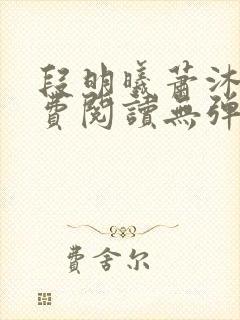 段明曦蕭沐
費閱讀無彈
費舍尔